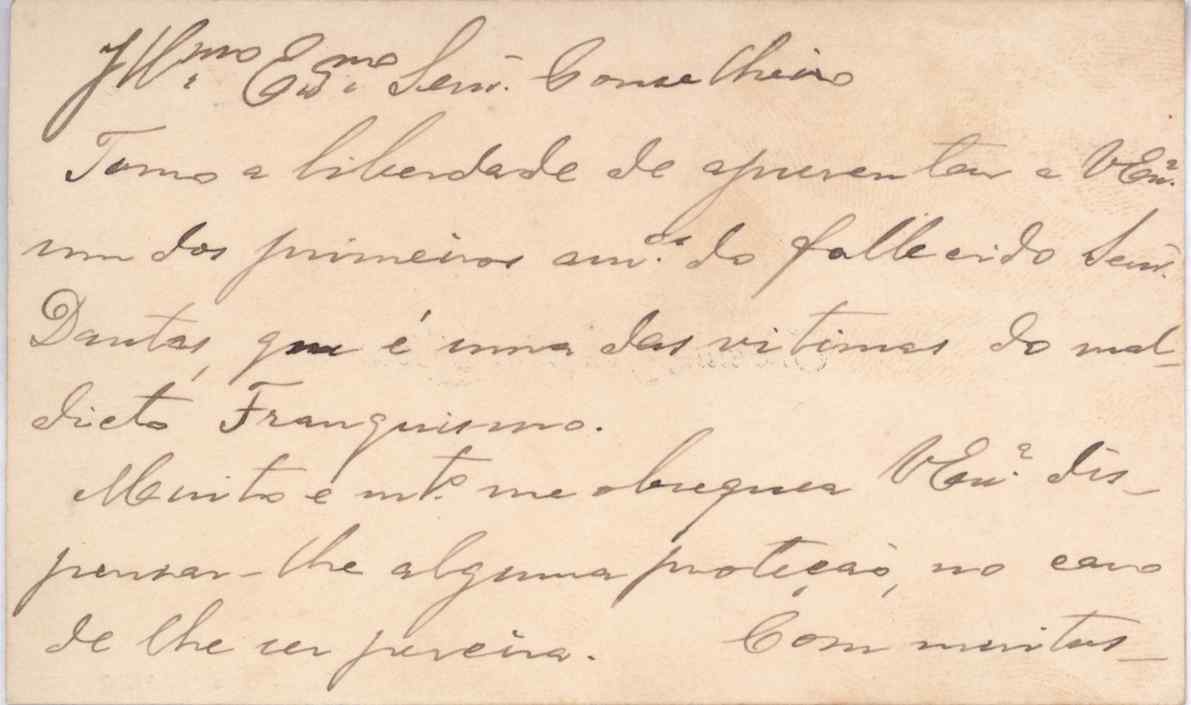 Illmo. Exmo. Senr. Conselheiro
Tomo a liberdade de apresentar a VExa.
um dos primeiros amos. do fallecido Senr.
Dantas, que é uma das vitimas do mal-
dicto Franquismo.
Muito e mto. me obsequea VExa. dis-
pensar-lhe alguma proteção, no caso
de lhe ser percisa. Com muitos-